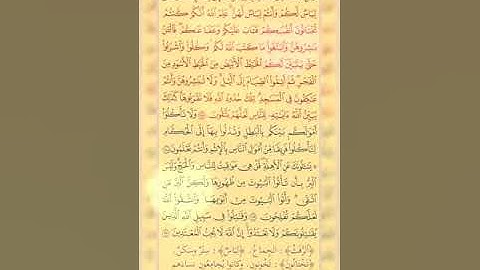 لِبَاسٌ لَّكُمْ وَأَنتُمْ لِبَاسٌ لَّهُنَّ ۗ عَلِمَ ٱللَّهُ أَنَّكُمْ كُنتُمْ
تَخْتَانُونَ أَنفُسَكُمْ فَتَابَ عَلَيْكُمْ وَعَفَا عَنكُمْ ۖ فَٱلْـَٰٔنَ
بَـٰشِرُوهُنَّ وَٱبْتَغُوا۟ مَا كَتَبَ ٱللَّهُ لَكُمْ ۚ وَكُلُوا۟ وَٱشْرَبُوا۟
حَتَّىٰ يَتَبَيَّنَ لَكُمُ ٱلْخَيْطُ ٱلْأَبْيَضُ مِنَ ٱلْخَيْطِ ٱلْأَسْوَدِ مِنَ
ٱلْفَجْرِ ۖ ثُمَّ أَتِمُّوا۟ ٱلصِّيَامَ إِلَى ٱلَّيْلِ ۚ وَلَا تُبَـٰشِرُوهُنَّ وَأَنتُمْ
عَـٰكِفُونَ فِى ٱلْمَسَـٰجِدِ ۗ تِلْكَ حُدُودُ ٱللَّهِ فَلَا تَقْرَبُوهَا ۗ كَذَٰلِكَ
يُبَيِّنُ ٱللَّهُ ءَايَـٰتِهِۦ لِلنَّاسِ لَعَلَّهُمْ يَتَّقُونَ وَلَا تَأْكُلُوٓا۟
أَمْوَٰلَكُم بَيْنَكُم بِٱلْبَـٰطِلِ وَتُدْلُوا۟ بِهَآ إِلَى ٱلْحُكَّامِ
لِتَأْكُلُوا۟ فَرِيقًا مِّنْ أَمْوَٰلِ ٱلنَّاسِ بِٱلْإِثْمِ وَأَنتُمْ تَعْلَمُونَ
يَسْـَٔلُونَكَ عَنِ ٱلْأَهِلَّةِ ۖ قُلْ هِىَ مَوَٰقِيتُ لِلنَّاسِ وَٱلْحَجِّ ۗ وَلَيْسَ
ٱلْبِرُّ بِأَن تَأْتُوا۟ ٱلْبُيُوتَ مِن ظُهُورِهَا وَلَـٰكِنَّ ٱلْبِرَّ مَنِ
ٱتَّقَىٰ ۗ وَأْتُوا۟ ٱلْبُيُوتَ مِنْ أَبْوَٰبِهَا ۚ وَٱتَّقُوا۟ ٱللَّهَ
لَعَلَّكُمْ تُفْلِحُونَ وَقَـٰتِلُوا۟ فِى سَبِيلِ ٱللَّهِ ٱلَّذِينَ
يُقَـٰتِلُونَكُمْ وَلَا تَعْتَدُوٓا۟ ۚ إِنَّ ٱللَّهَ لَا يُحِبُّ ٱلْمُعْتَدِينَ
﴿ٱلرَّفَثُ﴾: الجماعُ. ﴿لِبَاسٌ﴾: سِترٌ وسكنٌ.
﴿تَخْتَانُونَ﴾: تخونون، وكانوا يُجامِعون نساءهم